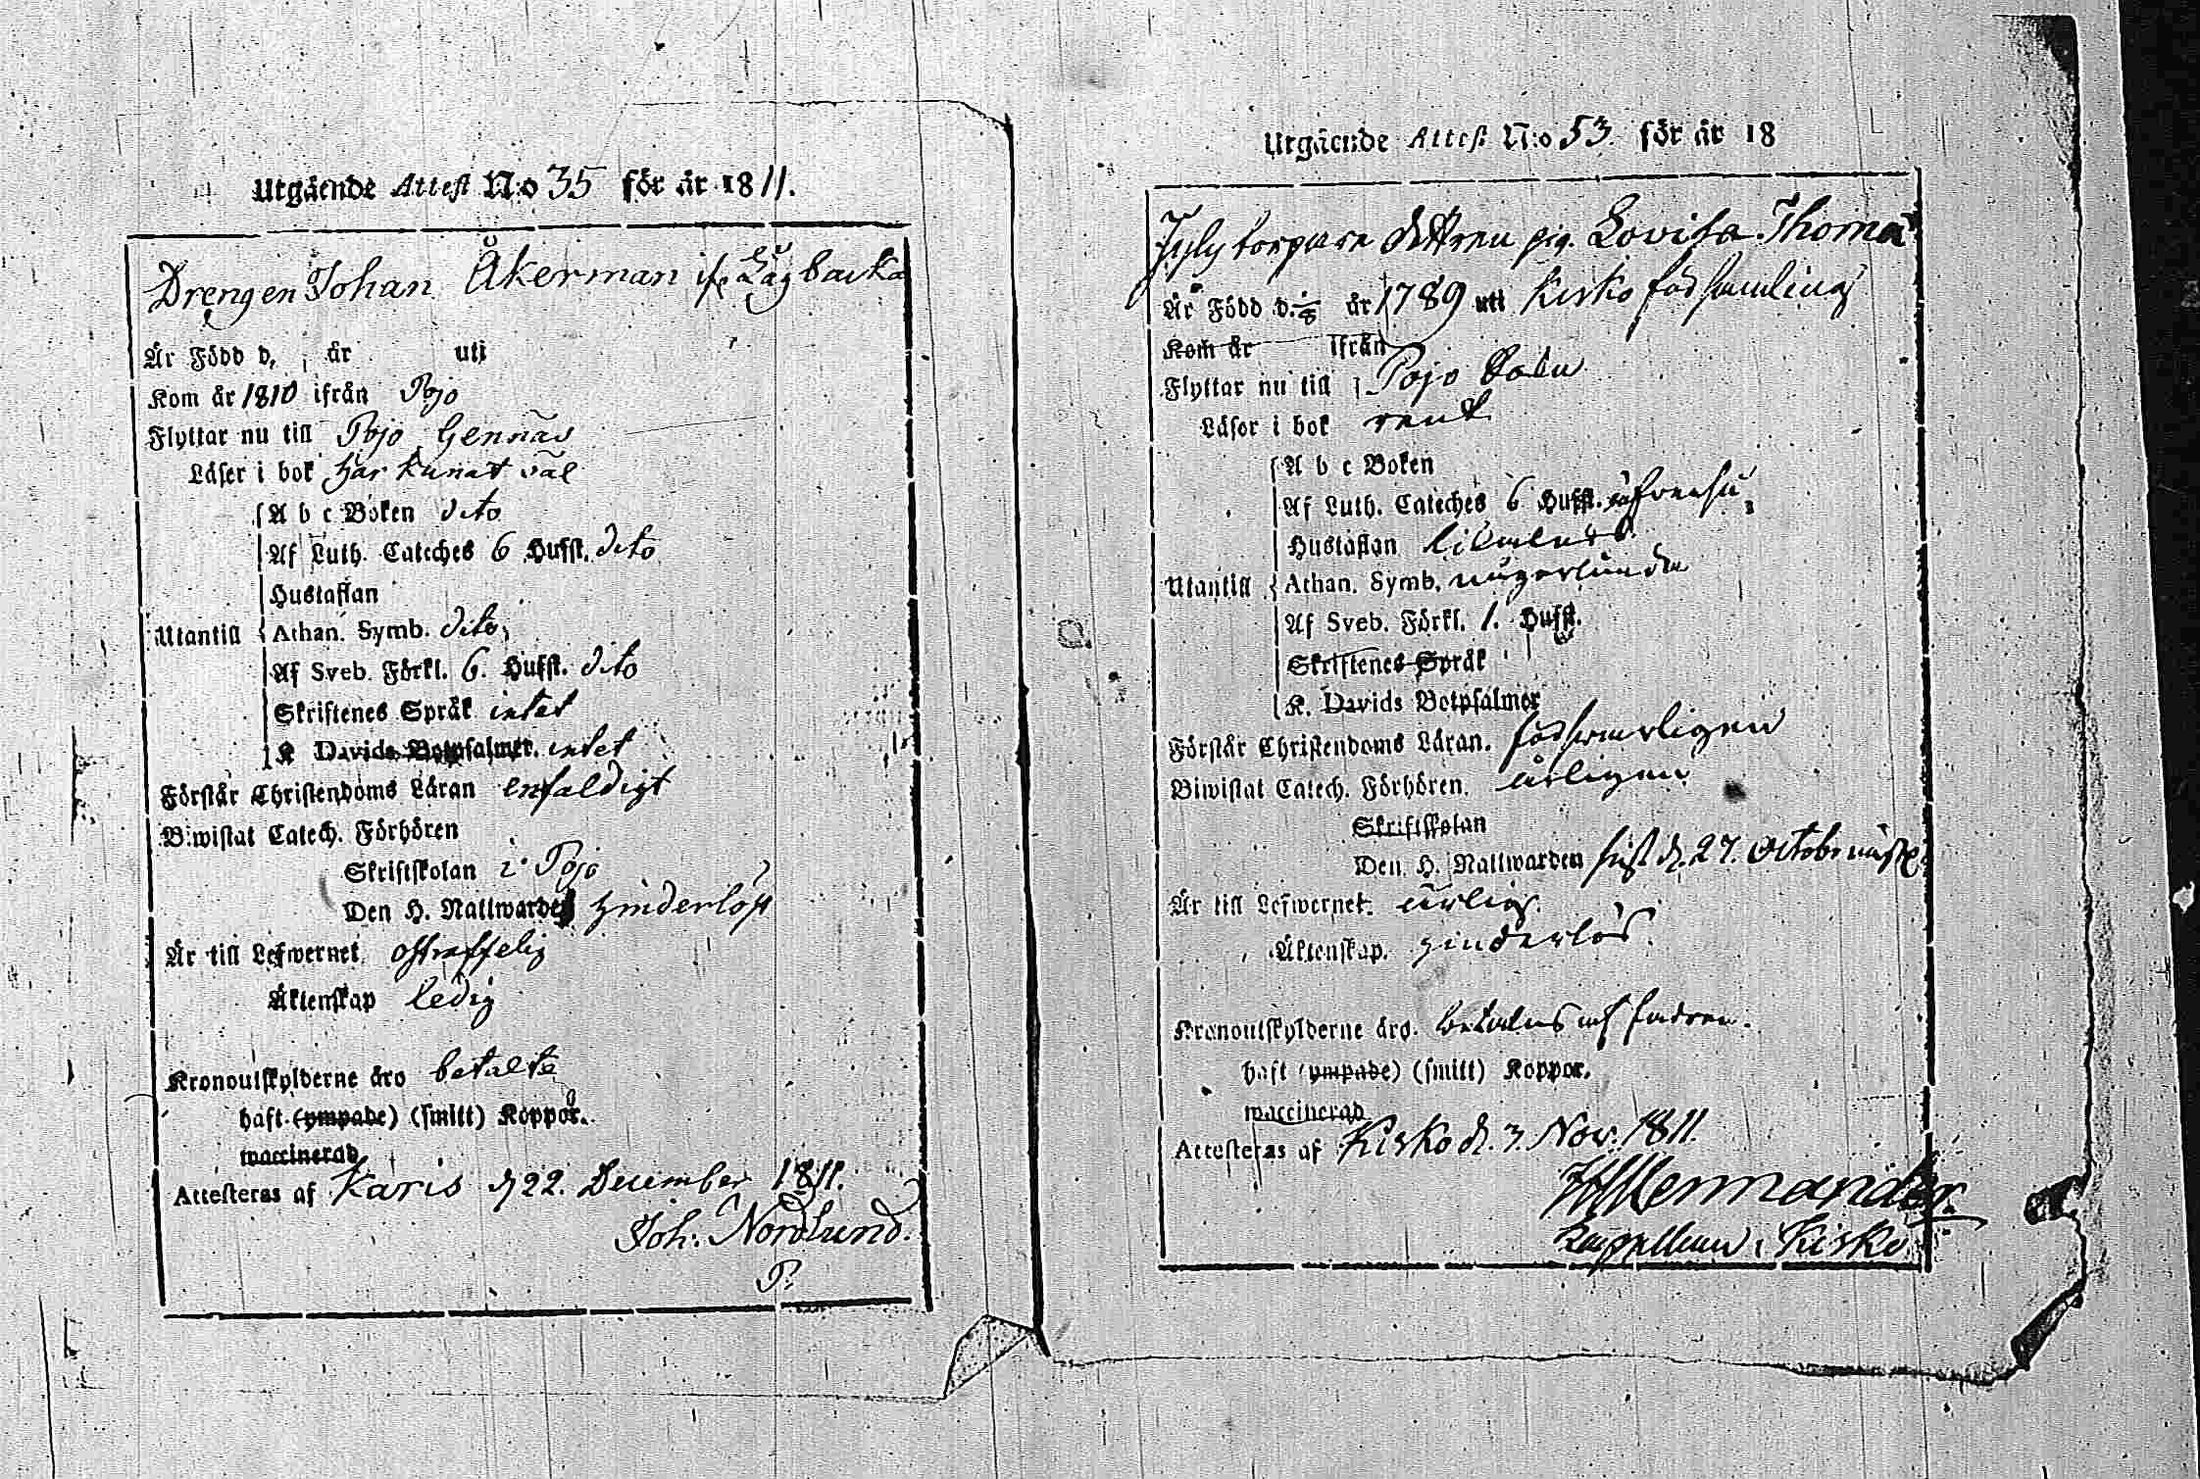 Utgående Attest N:o 35 för år 1811.
Drengen Johan Åkerman ifr. Lågbacka
Är Född d. år uti
Kom år 1810 ifrån Pojo
Flyttar nu till Pojo Gennäs
Läser i bok har kunat väl
A b c Boken dito
Af Luth. Cateches 6 Hufst. dito
Hustaflan
Utantill Athan. Symb. dito
Af Sveb. Förkl. 6. Hufst. dito
Skriftenes Språk intet
K Davids Botpsalmer. intet
Förstår Christendoms Läran enfaldigt
Biwistat Catech. Förhören
Skriftskolan i Pojo
Den H. Nattwarden hinderlöst
Är till Lefwernet ostraffelig
Äktenskap ledig
Kronoutskylderne äro betalte
haft (ympade) (smitt) Koppor.
waccinerad
Attesteras af Karis d 22. December 1811.
Joh. Nordlund.
P.
Utgående Attest N:o 53. för år 18
torpare dottren pig. Lovisa Thomæ
Är Född d. år 1789 uti Kisko församling
Kom år ifrån
Flyttar nu till Pojo
Läser i bok rent
A b c Boken
Af Luth. Cateches 6 Hufst.
Hustaflan likaledes
Utantill Athan. Symb. någorlunda
Af Sveb. Förkl. 1. Hufst.
Skriftenes Språk
K. Davids Botpsalmer
Förstår Christendoms Läran. försvarligen
Biwistat Catech. Förhören. årligen
Skriftskolan
Den H. Nattwarden sist d. 27. Octobr
Är till Lefwernet. ärlig.
Äktenskap. hinderlös.
Kronoutskylderne äro. betalas af fadren.
haft (ympade) (smitt) Koppor.
waccinerad
Attesteras af Kisko d. 3. Nov. 1811.
Kappellan i Kisko